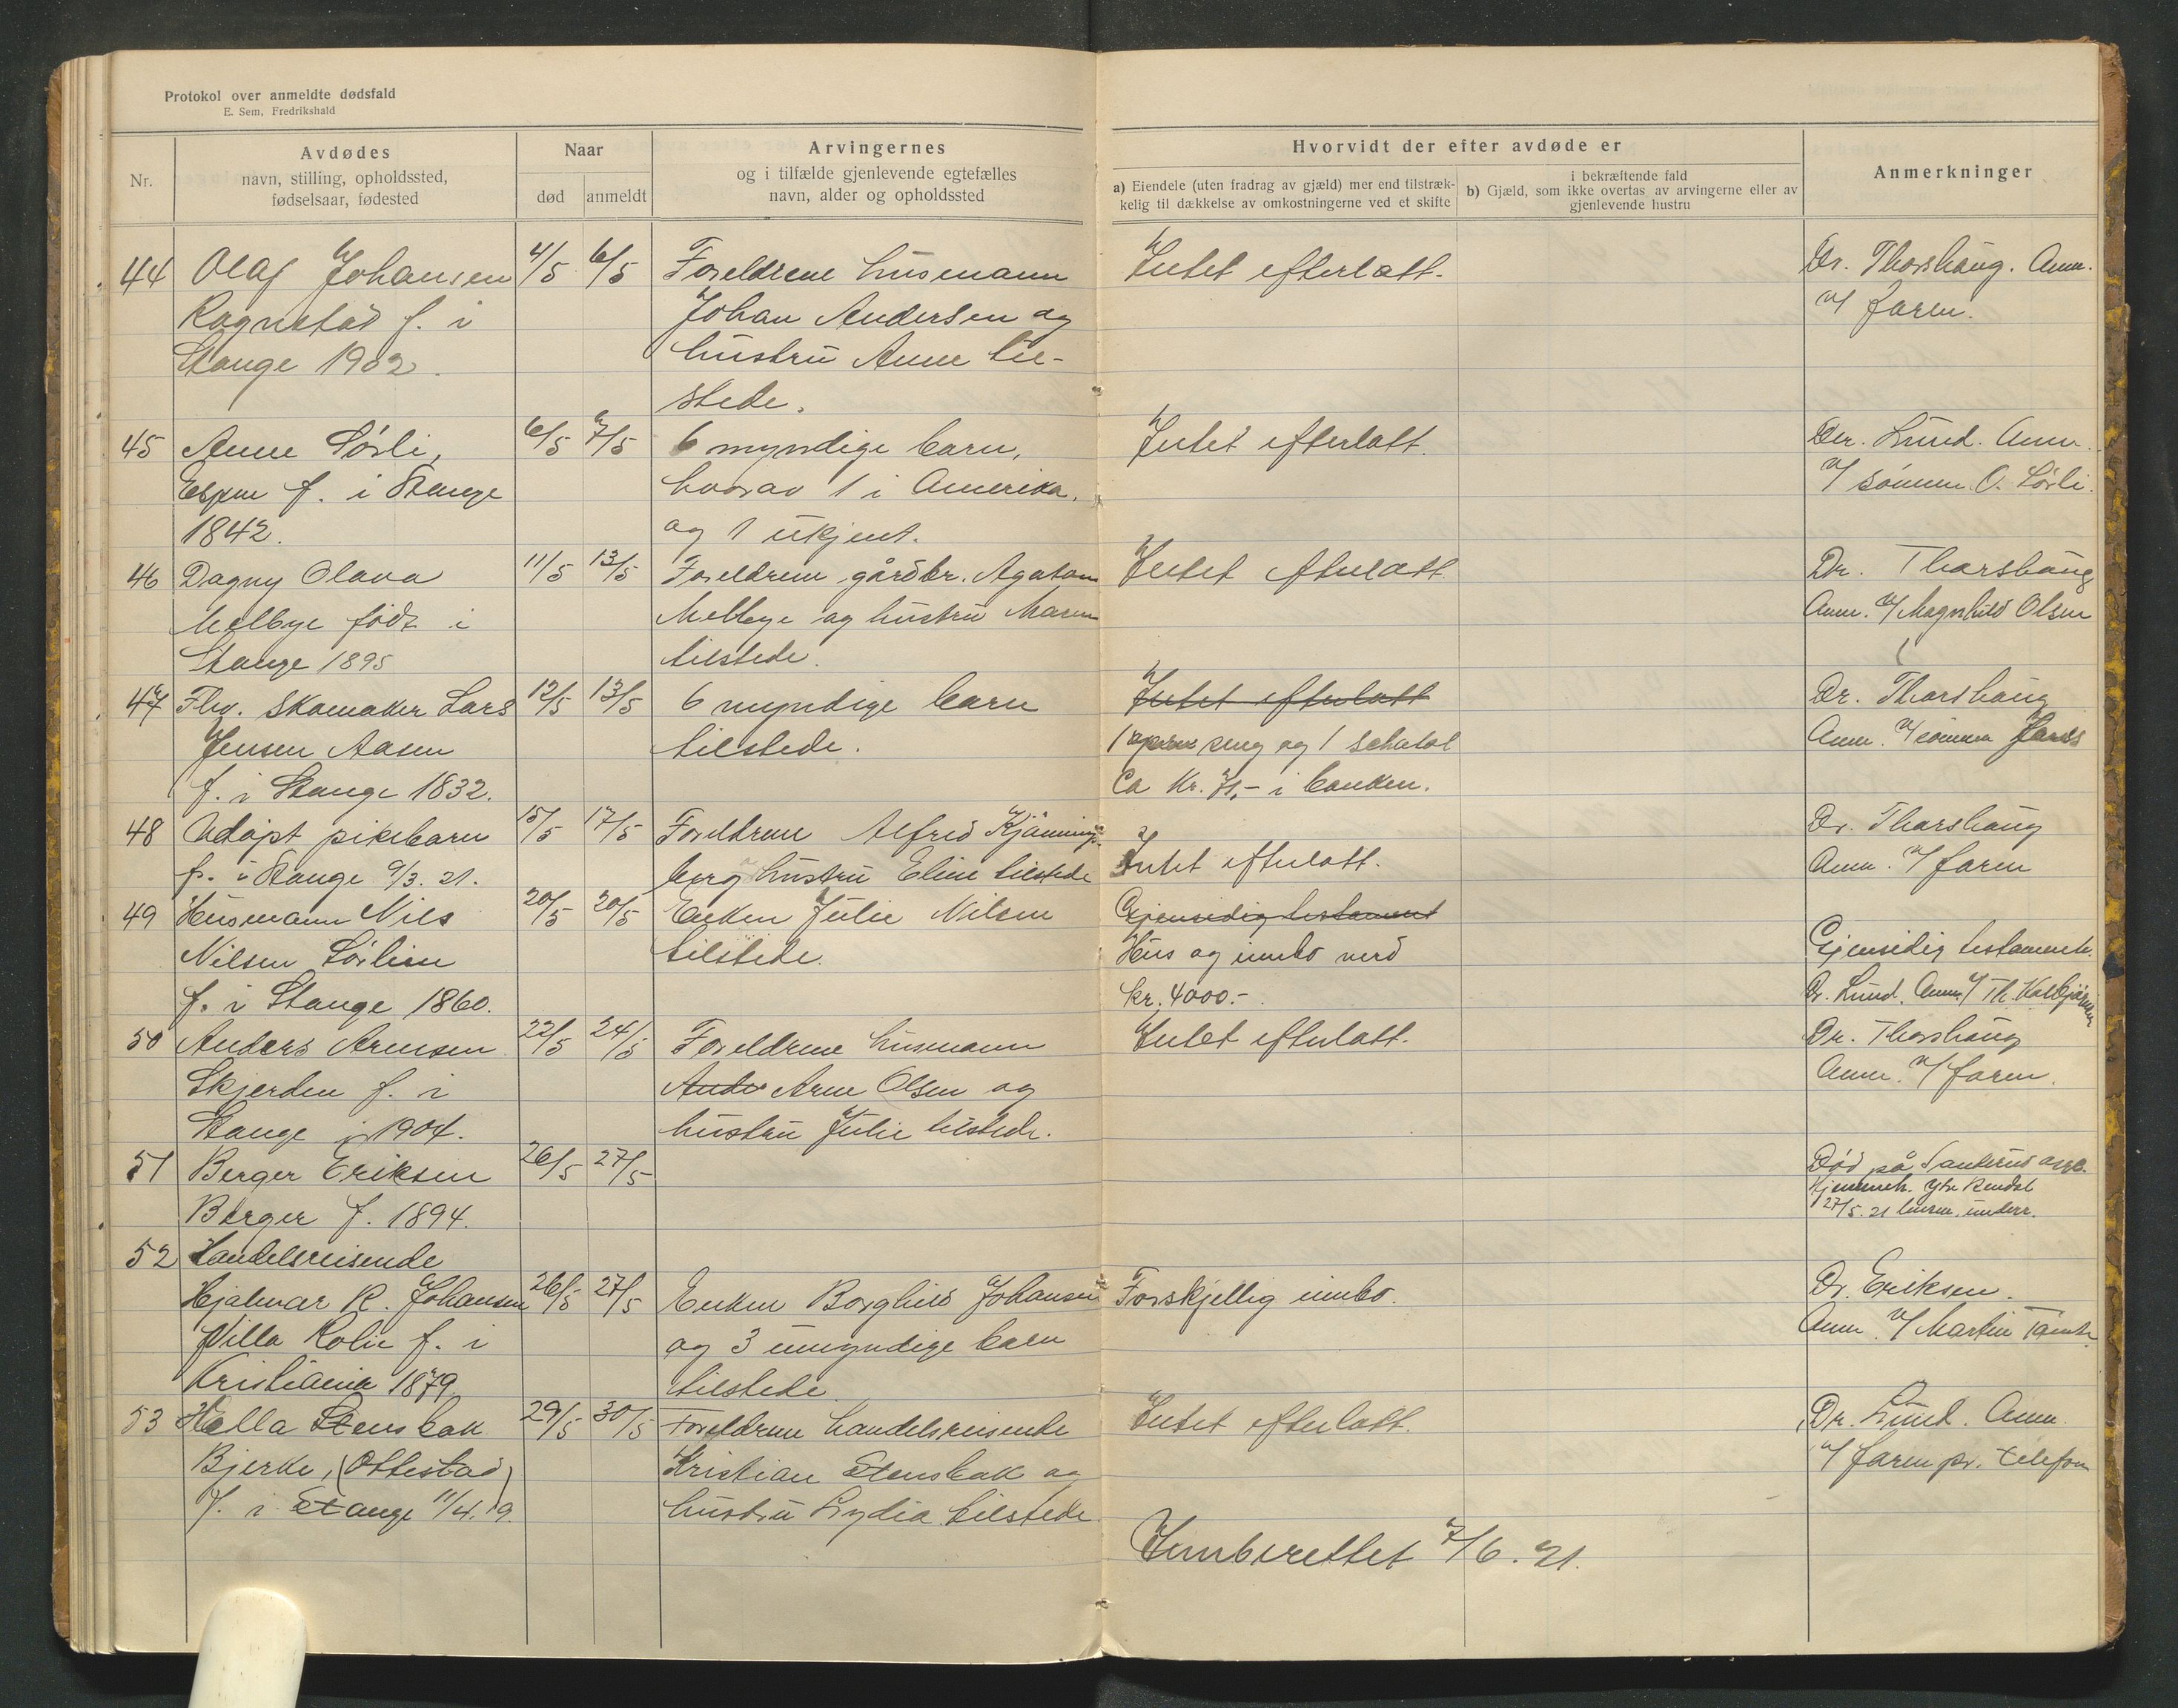 Protokol over anmeldte dødsfald
E. Sem, Fredrikshald
Nr.
Avdødes
navn, stilling, opholdssted,
fødselsaar, fødested
Naar
død
anmeldt
Arvingernes
og i tilfælde gjenlevende egtefælles
navn, alder og opholdssted
Hvorvidt der efter avdøde er
a) Eiendele (uten fradrag av gjæld) mer end tilstræk-
kelig til dækkelse av omkostningerne ved et skifte
i bekræftende fald
b) Gjæld, som ikke overtas av arvingerne eller av
gjenlevende hustru
Anmerkninger
44 Olaf Johansen 4/5 6/5 Foreldrene husmann Intet efterlatt. Dr. Thorshaug. Anm.
Rognstad f. i Johan Andersen og v/ faren.
Stange 1902. hustru Anne til-
stede.
45 Anne Sörli, 6/5 7/5 6 myndige barn, Intet efterlatt. Dr. Lund. Anm.
Espen f. i Stange hvorav 1 i Amerika. v/ sönnen O. Sörli.
1842. og 1 ukjent.
46 Dagny Olava 11/5 13/5 Foreldrene gårdbr. Agaton Intet efterlatt. Dr. Thorshaug
Melbye födt i Melbye og hustru Maren Anm. v/ Magnhild Olsen
Stange 1895 tilstede.
47 Fhv. skomaker Lars 12/5 13/5 6 myndige barn Intet efterlatt Dr. Thorshaug
Jensen Aasen tilstede. 1 seng og 1 schatol Anm. v/ sönnen
f. i Stange 1832. Ca Kr. 71,- i banken.
48 Udöpt pikebarn 15/5 17/5 Foreldrene Alfred Kjönnings- Dr. Thorshaug
f. i Stange 9/3. 21. berg hustru Eline tilstede Intet efterlatt. Anm. v/ faren
49 Husmann Nils 20/5 20/5 Enken Julie Nilsen Gjensidig testament
Nilsen Sörlien tilstede. Hus og innbo verd Gjensidig testament.
f. i Stange 1860. kr. 4000.- Dr. Lund. Anm. v/ Th.
50 Anders Arnesen 22/5 24/5 Foreldrene husmann Intet efterlatt. Dr. Thorshaug
Skjerden f. i Ander Arne Olsen og Anm. v/ faren.
Stange i 1904. hustru Julie tilstede.
51 Berger Eriksen 26/5 27/5 Död på Sanderud asyl.
Berger f. 1894. Hjemmeh. Ytre Rendal
27/5. 21 underr.
52 Handelsreisende
Hjalmar R. Johansen 26/5 27/5 Enken Borghild Johansen Forskjellig innbo. Dr. Eriksen.
Villa Rolie f. i og 3 umyndige barn Anm. v/ Martin
Kristiania 1879. tilstede
53 Hella Stensbak 29/5 30/5 Foreldrene handelsreisende Intet efterlatt. Dr. Lund. Anm.
Bjerke, (Ottestad) Kristian Stensbak og v/ faren pr. telefon
f. i Stange 11/4. 19. hustru Lydia tilstede.
Innberettet 7/6. 21.